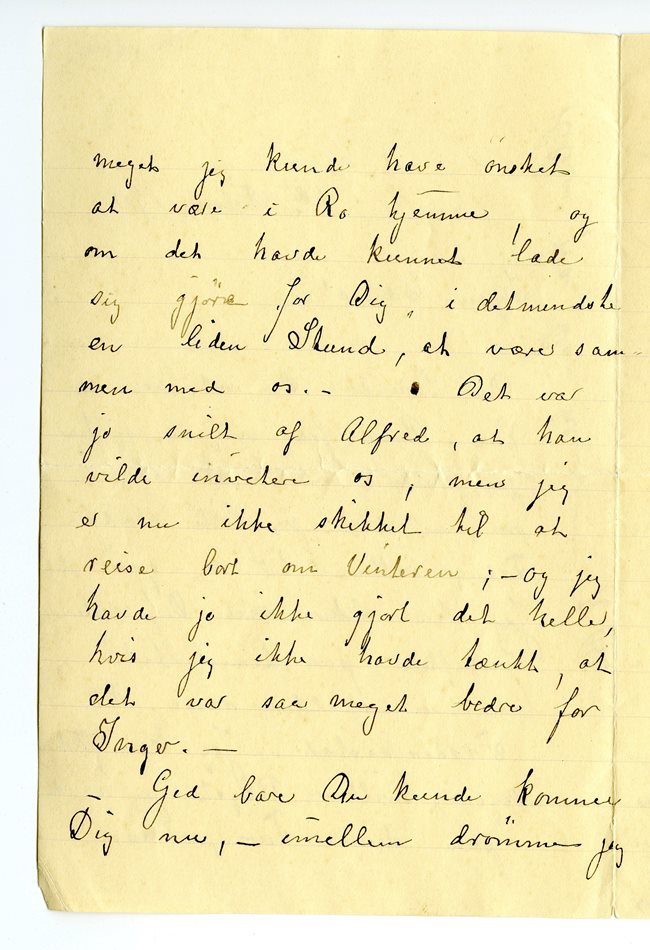 meget jeg kunde have ønsket
at være i Ro hjemme, og
om det havde kunnet lade
sig gjøre for Dig, i detmindste
en liden Stund, at være sam-
men med os. – Det var
jo snilt af Alfred, at han
vilde invitere os, men jeg
er nu ikke skikket til at
reise bort om Vinteren; – og jeg
havde jo ikke gjort det heller,
hvis jeg ikke havde tænkt, at
det var saa meget bedre for
Inger. –
Gid bare Du kunde komme
Dig nu, – imellem drømmer jeg